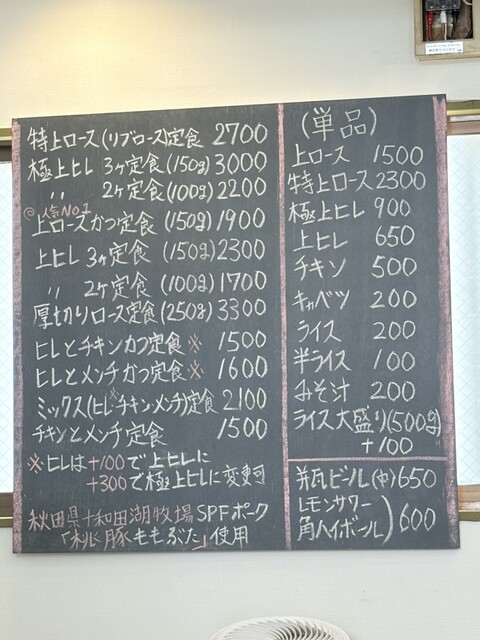 特上ロース(リブロース)定食 2700
極上ヒレ 3ヶ定食(150g) 3000
〃 2ヶ定食(100g) 2200
◎人気No1
上ロースかつ定食(150g) 1900
上ヒレ 3ヶ定食 (150g) 2300
〃 2ヶ定食 (100g) 1700
厚切りロース定食(250g) 3300
ヒレとチキンかつ定食※ 1500
ヒレとメンチかつ定食※ 1600
ミックス(ヒレ※チキンメンチ)定食 2100
チキンとメンチ定食 1500
※ヒレは+100で上ヒレに
+300で極上ヒレに変更可
秋田県十和田湖牧場SPFポーク
「桃豚ももぶた」使用
(単品)
上ロース 1500
特上ロース 2300
極上ヒレ 900
上ヒレ 650
チキン 500
キャベツ 200
ライス 200
半ライス 100
みそ汁 200
ライス大盛り(500g)
+100
瓶ビール(中) 650
レモンサワー
角ハイボール) 600